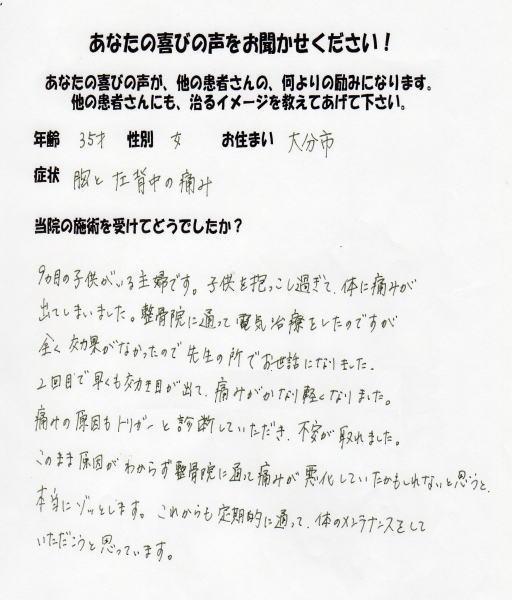 あなたの喜びの声をお聞かせください！
あなたの喜びの声が、他の患者さんの、何よりの励みになります。
他の患者さんにも、治るイメージを教えてあげて下さい。
年齢 35才 性別 女 お住まい 大分市
症状 胸と左背中の痛み
当院の施術を受けてどうでしたか？
9ヵ月の子供がいる主婦です。子供を抱っこし過ぎて、体に痛みが
出てしまいました。整骨院に通って電気治療をしたのですが
全く効果がなかったので先生の所でお世話になりました。
2回目で早くも効き目が出て、痛みがかなり軽くなりました。
痛みの原因もトリガーと診断していただき、不安が取れました。
このまま原因がわからず整骨院に通って痛みが悪化していたかもしれないと思うと、
本当にゾッとします。これからも定期的に通って、体のメンテナンスをして
いただこうと思っています。